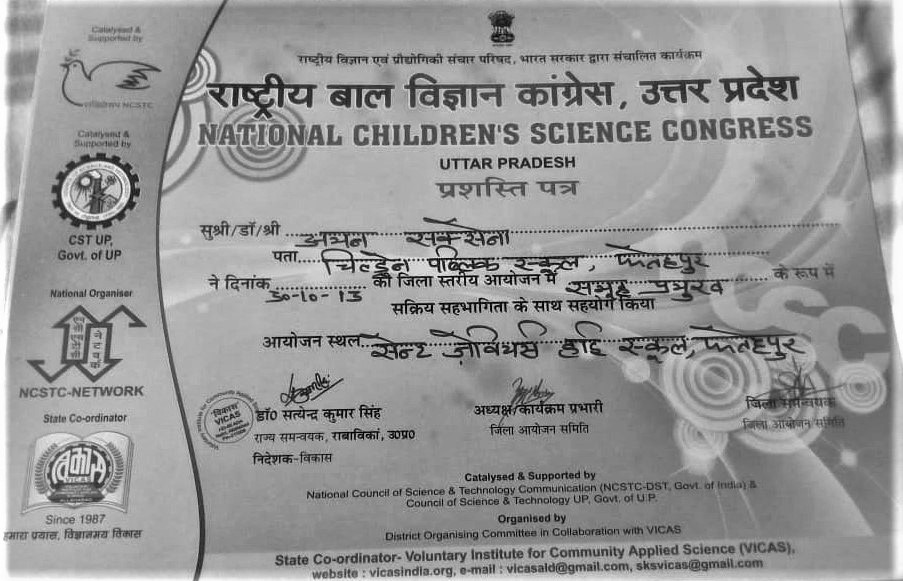 Catalysed &
Supported by
एनसीएसटीसी NCSTC
Catalysed &
Supported by
CST UP,
Govt. of UP
National Organiser
नेटवर्क
NCSTC-NETWORK
State Co-ordinator
विकास
VICAS
Since 1987
हमारा प्रयास, विज्ञानमय विकास
राष्ट्रीय विज्ञान एवं प्रौद्योगिकी संचार परिषद, भारत सरकार द्वारा संचालित कार्यक्रम
राष्ट्रीय बाल विज्ञान कांग्रेस, उत्तर प्रदेश
NATIONAL CHILDREN'S SCIENCE CONGRESS
UTTAR PRADESH
प्रशस्ति पत्र
सुश्री/डॉ/श्री सक्सेना
पता चिल्ड्रेन पब्लिक स्कूल, फतेहपुर
ने दिनांक 30-10-13 की जिला स्तरीय आयोजन में समूह प्रमुख के रूप में
सक्रिय सहभागिता के साथ सहयोग किया
आयोजन स्थल सेन्ट जेवियर्स हाई स्कूल, फतेहपुर
विकास
VICAS
डॉ0 सत्येन्द्र कुमार सिंह
राज्य समन्वयक, राबाविकां, उ0प्र0
निदेशक-विकास
अध्यक्ष/कार्यक्रम प्रभारी
जिला आयोजन समिति
जिला समन्वयक
जिला आयोजन समिति
Catalysed & Supported by
National Council of Science & Technology Communication (NCSTC-DST, Govt. of India) &
Council of Science & Technology UP, Govt. of U.P.
Organised by
District Organising Committee in Collaboration with VICAS
State Co-ordinator- Voluntary Institute for Community Applied Science (VICAS),
website : vicasindia.org, e-mail : vicasald@gmail.com, sksvicas@gmail.com